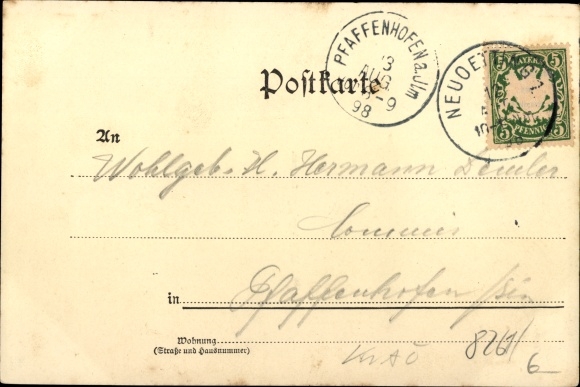 PFAFFENHOFEN a. Jlm
13
AUG
8-9
98
NEUOET
BAYERN
5 5
5 PFENNIG 5
Postkarte
An
Wohlgeb. H. Hermann
Commis
in Pfaffenhofen
Wohnung
(Straße und Hausnummer)
6